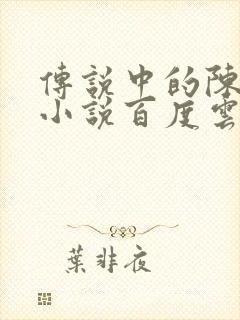 傳說中的陳
小說百度雲
葉非夜